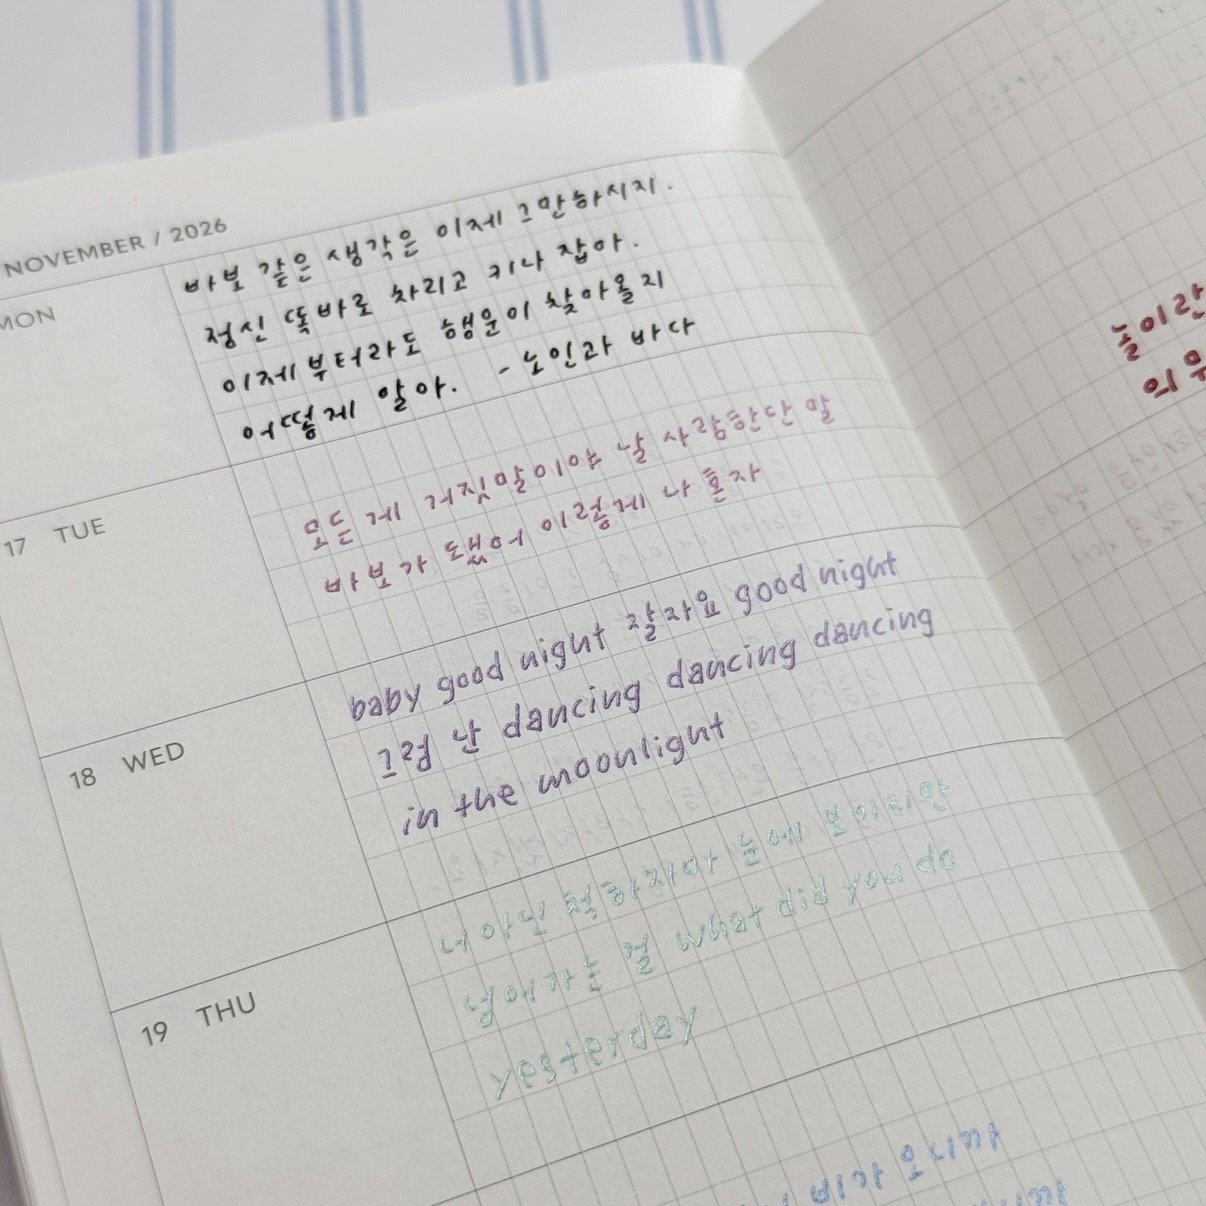 NOVEMBER / 2026
MON
바보 같은 생각은 이제 그만하시지.
정신 똑바로 차리고 키나 잡아.
이제부터라도 행운이 찾아올지
어떻게 알아. - 노인과 바다
17 TUE
모든 게 거짓말이야 날 사랑한단 말
바보가 됐어 이렇게 나 혼자
18 WED
baby good night 잘자요 good night
그럼 난 dancing dancing dancing
in the moonlight
19 THU
너 아닌 척하지마 눈에 보이지만
넘어가는 걸 what did you do
yesterday
비가 오니까
놀이란
의